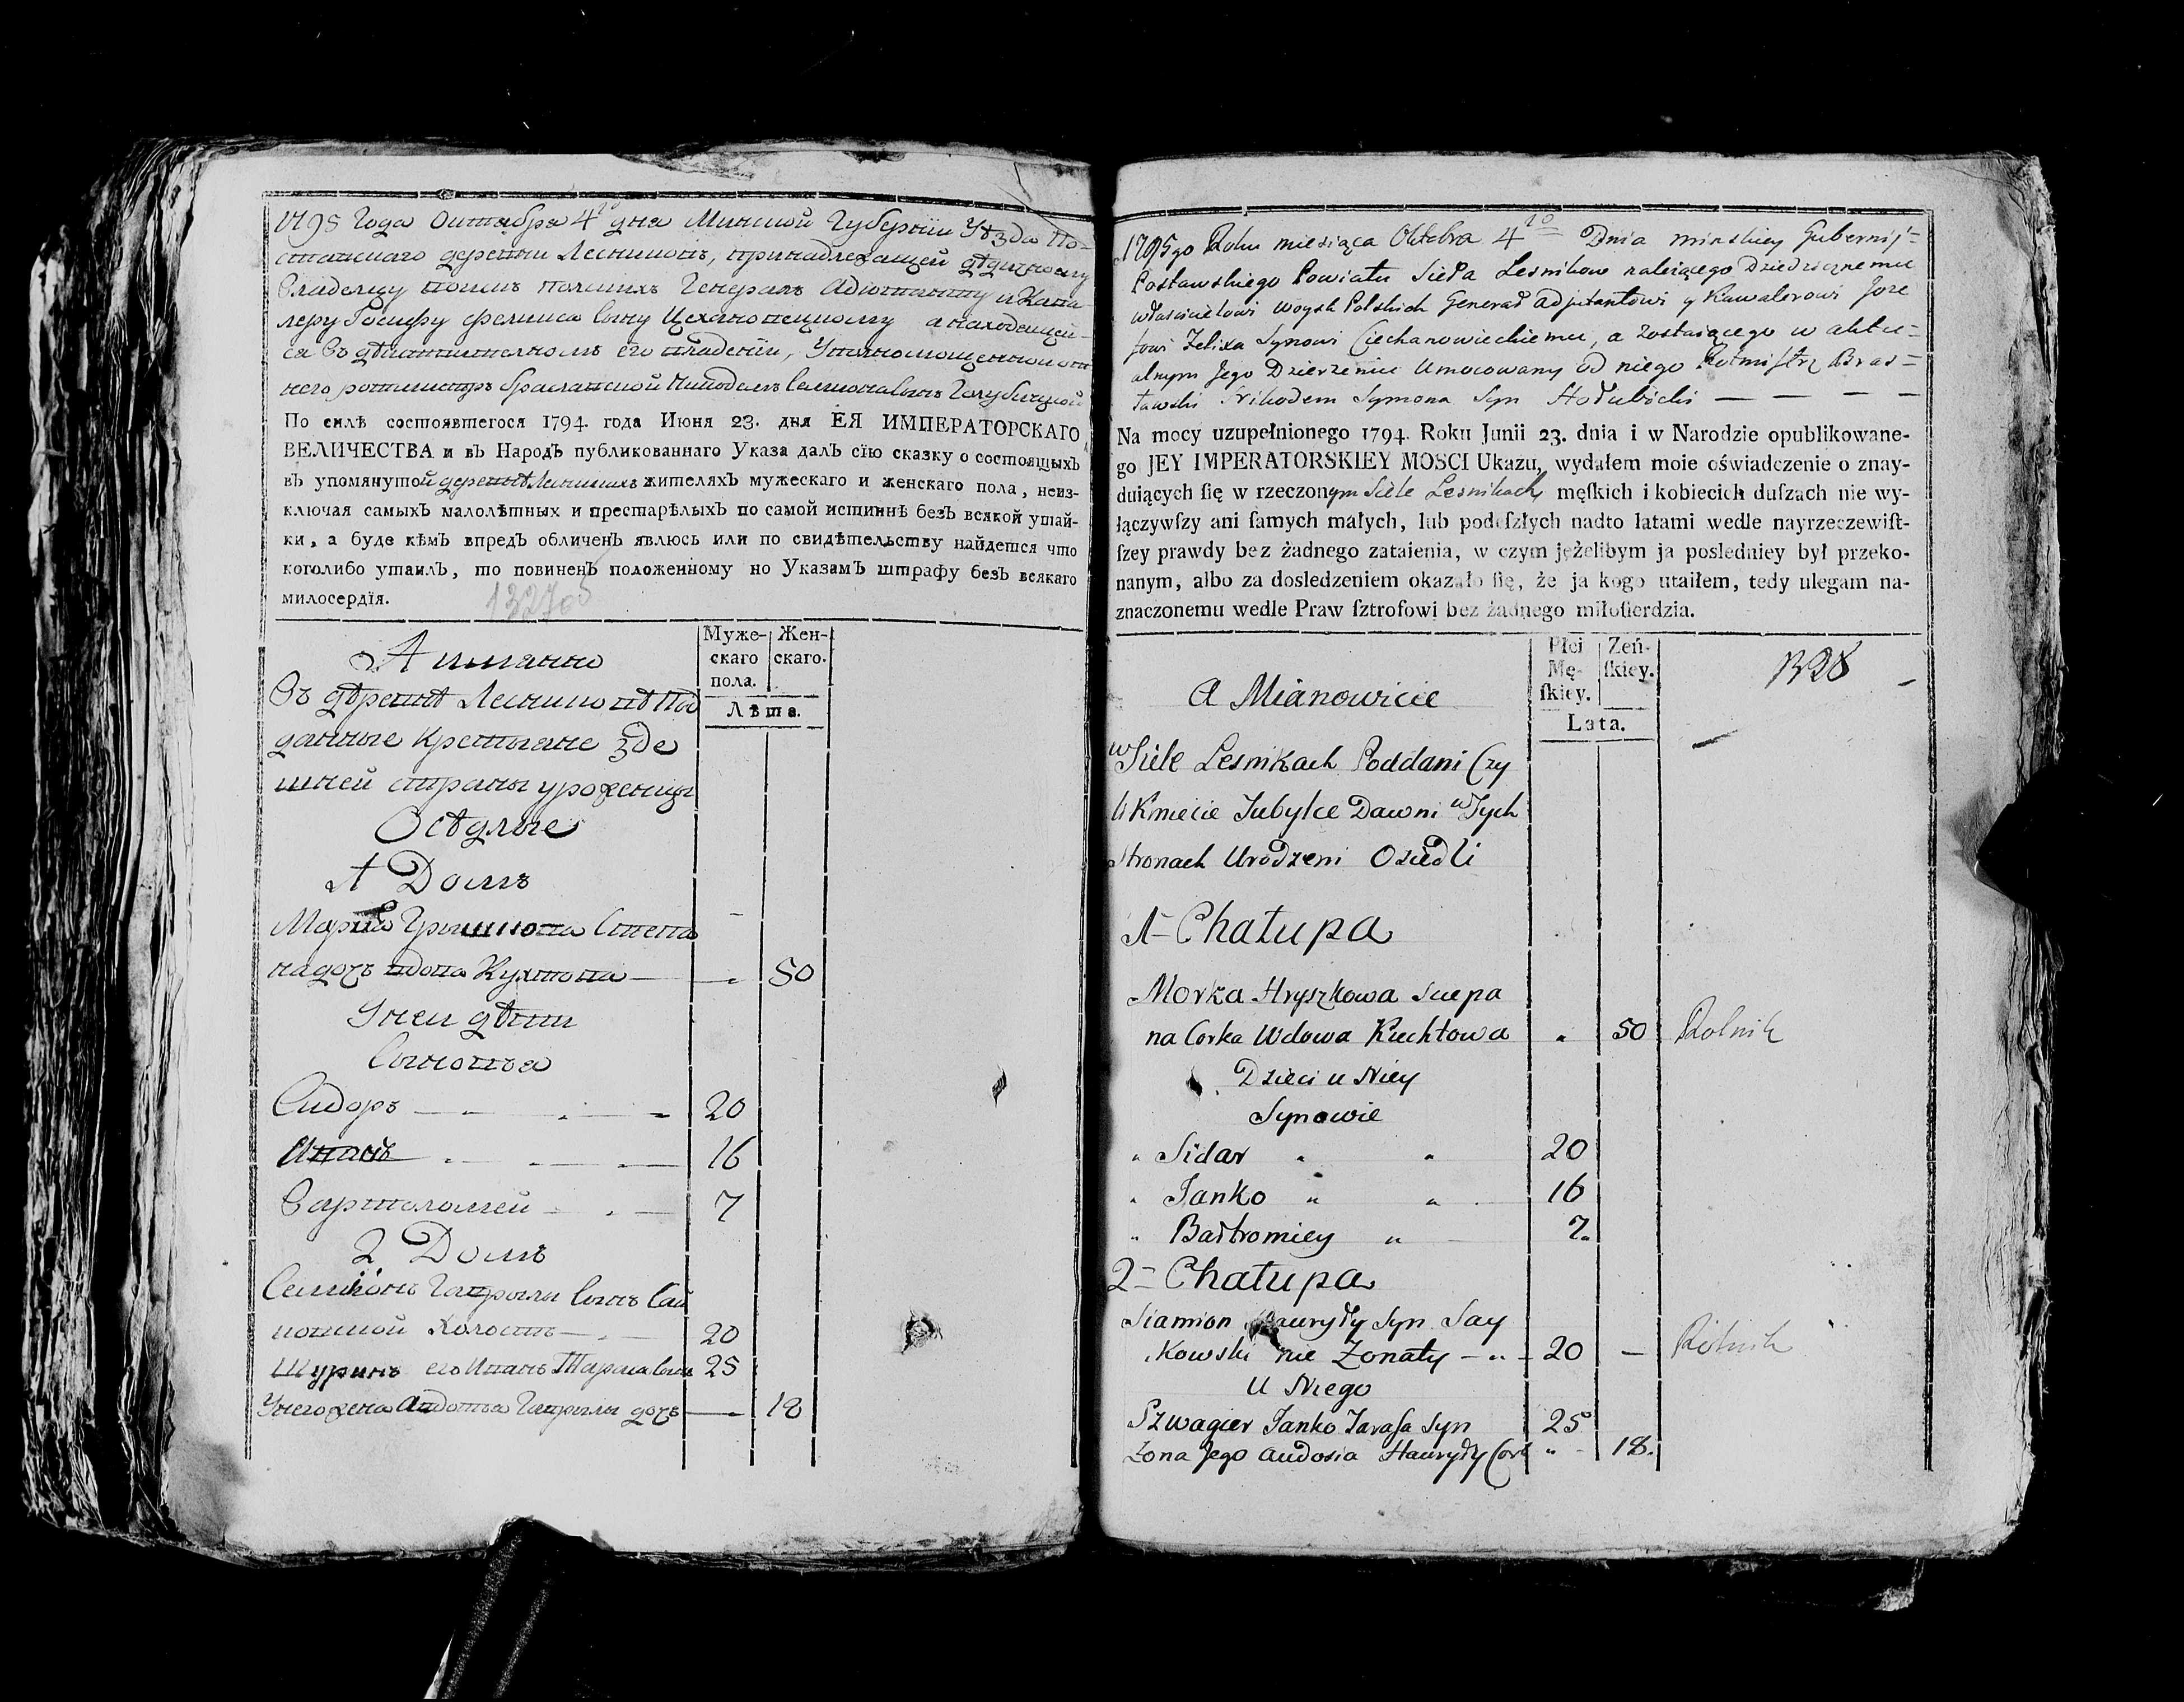 1795 Года Октября 4го дня Минской Губернїи Уѣзда По-
ставскаго деревни Лесниковъ, принадлежащей дѣдичному
Владельцу войскъ польскихъ Генералъ Адіютанту и Кава
леру Іосифу Феликса сыну Цехановецкому а находящей-
ся въ дѣйствительномъ его владении, Уполномоченной отъ
него ротмистръ браславской Никодемъ Семиона сынъ Голубицкой
По силѣ состоявшегося 1794. года Июня 23. дня ЕЯ ИМПЕРАТОРСКАГО
ВЕЛИЧЕСТВА и въ Народъ публикованнаго Указа далъ сїю сказку о состоящыхъ
въ упомянутой деревнѣ Лесникахъ жителяхъ мужескаго и женскаго пола, неиз-
ключая самыхъ малолѣтныхъ и престарѣлыхъ по самой истиннѣ безъ всякой утай-
ки, а буде кѣмъ впредъ обличенъ явлюсь или по свидѣтельству найдется что
коголибо утаилъ, то повиненъ положенному по Указамъ штрафу безъ всякаго
милосердїя.
Муже-
скаго
пола.
Жен-
скаго.
Лѣта.
А имянно
Въ дѣревнѣ Лесниковѣ По
данные крестьяне зде
шней страны уроженцы
Осѣдлые
1 Домъ
Марка Гришкова Степа
на дочъ вдова Кухтова — 50
У неи дѣти
Сыновья
Сидоръ — 20
Иванъ — 16
Вартоломей — 7
2 Домъ
Семионъ Гаврилы сынъ Сай
ковской холостъ — 20
Шуринъ его Иванъ Тараса сынъ 25
У него жена Авдотья Гаврилы дочъ — 18
1795go Roku miesiąca Oktobra 4go Dnia minskiey Gubernij=
Postawskiego Powiatu Sieła Lesnikow należącego Dziedzicznemu
właścicielowi Woysk Polskich Generał adjutantowi y Kawalerowi Joze
fowi Felixa Synowi Ciechanowieckiemu, a zostaiącego w aktu=
alnym Jego Dzierżeniu Umocowany od niego Rotmistrz Bras=
ławski Nikodem Symona Syn Hołubicki — — — —
Na mocy uzupełnionego 1794. Roku Junii 23. dnia i w Narodzie opublikowane-
go JEY IMPERATORSKIEY MOSCI Ukazu, wydałem moie oświadczenie o znay-
duiących ſię w rzeczonym Siele Lesnikach męſkich i kobiecich duſzach nie wy-
łączywſzy ani ſamych małych, lub podeſzłych nadto latami wedle nayrzeczewiſt-
ſzey prawdy bez żadnego zataienia, w czym jeżelibym ja posledniey był przeko-
nanym, albo za dosledzeniem okazało ſię, że ja kogo utaiłem, tedy ulegam na-
znaczonemu wedle Praw ſztrofowi bez żadnego miłoſierdzia.
Płci
Mę-
ſkiey.
Żeń-
ſkiey.
Lata.
1328
a Mianowicie
w Siele Lesnikach Poddani Czy
li Kmiecie Tubylce Dawni w Tych
Stronach Urodzeni Osiedli
1= Chałupa
Morka Hryszkowa Sciepa
na Corka Wdowa Kuchtowa „ 50 Rolnik
Dzieci u Niey
Synowie
„ Sidar „ „ 20
„ Janko „ „ 16
„ Bartromiey „ 7.
2= Chałupa
Siamion Hauryły Syn Say
kowski nie Żonaty — „ — 20 — Rolnik
U Niego
Szwagier Janko Tarasa Syn 25
Żona Jego Audosia Hauryły Cork „ 18.